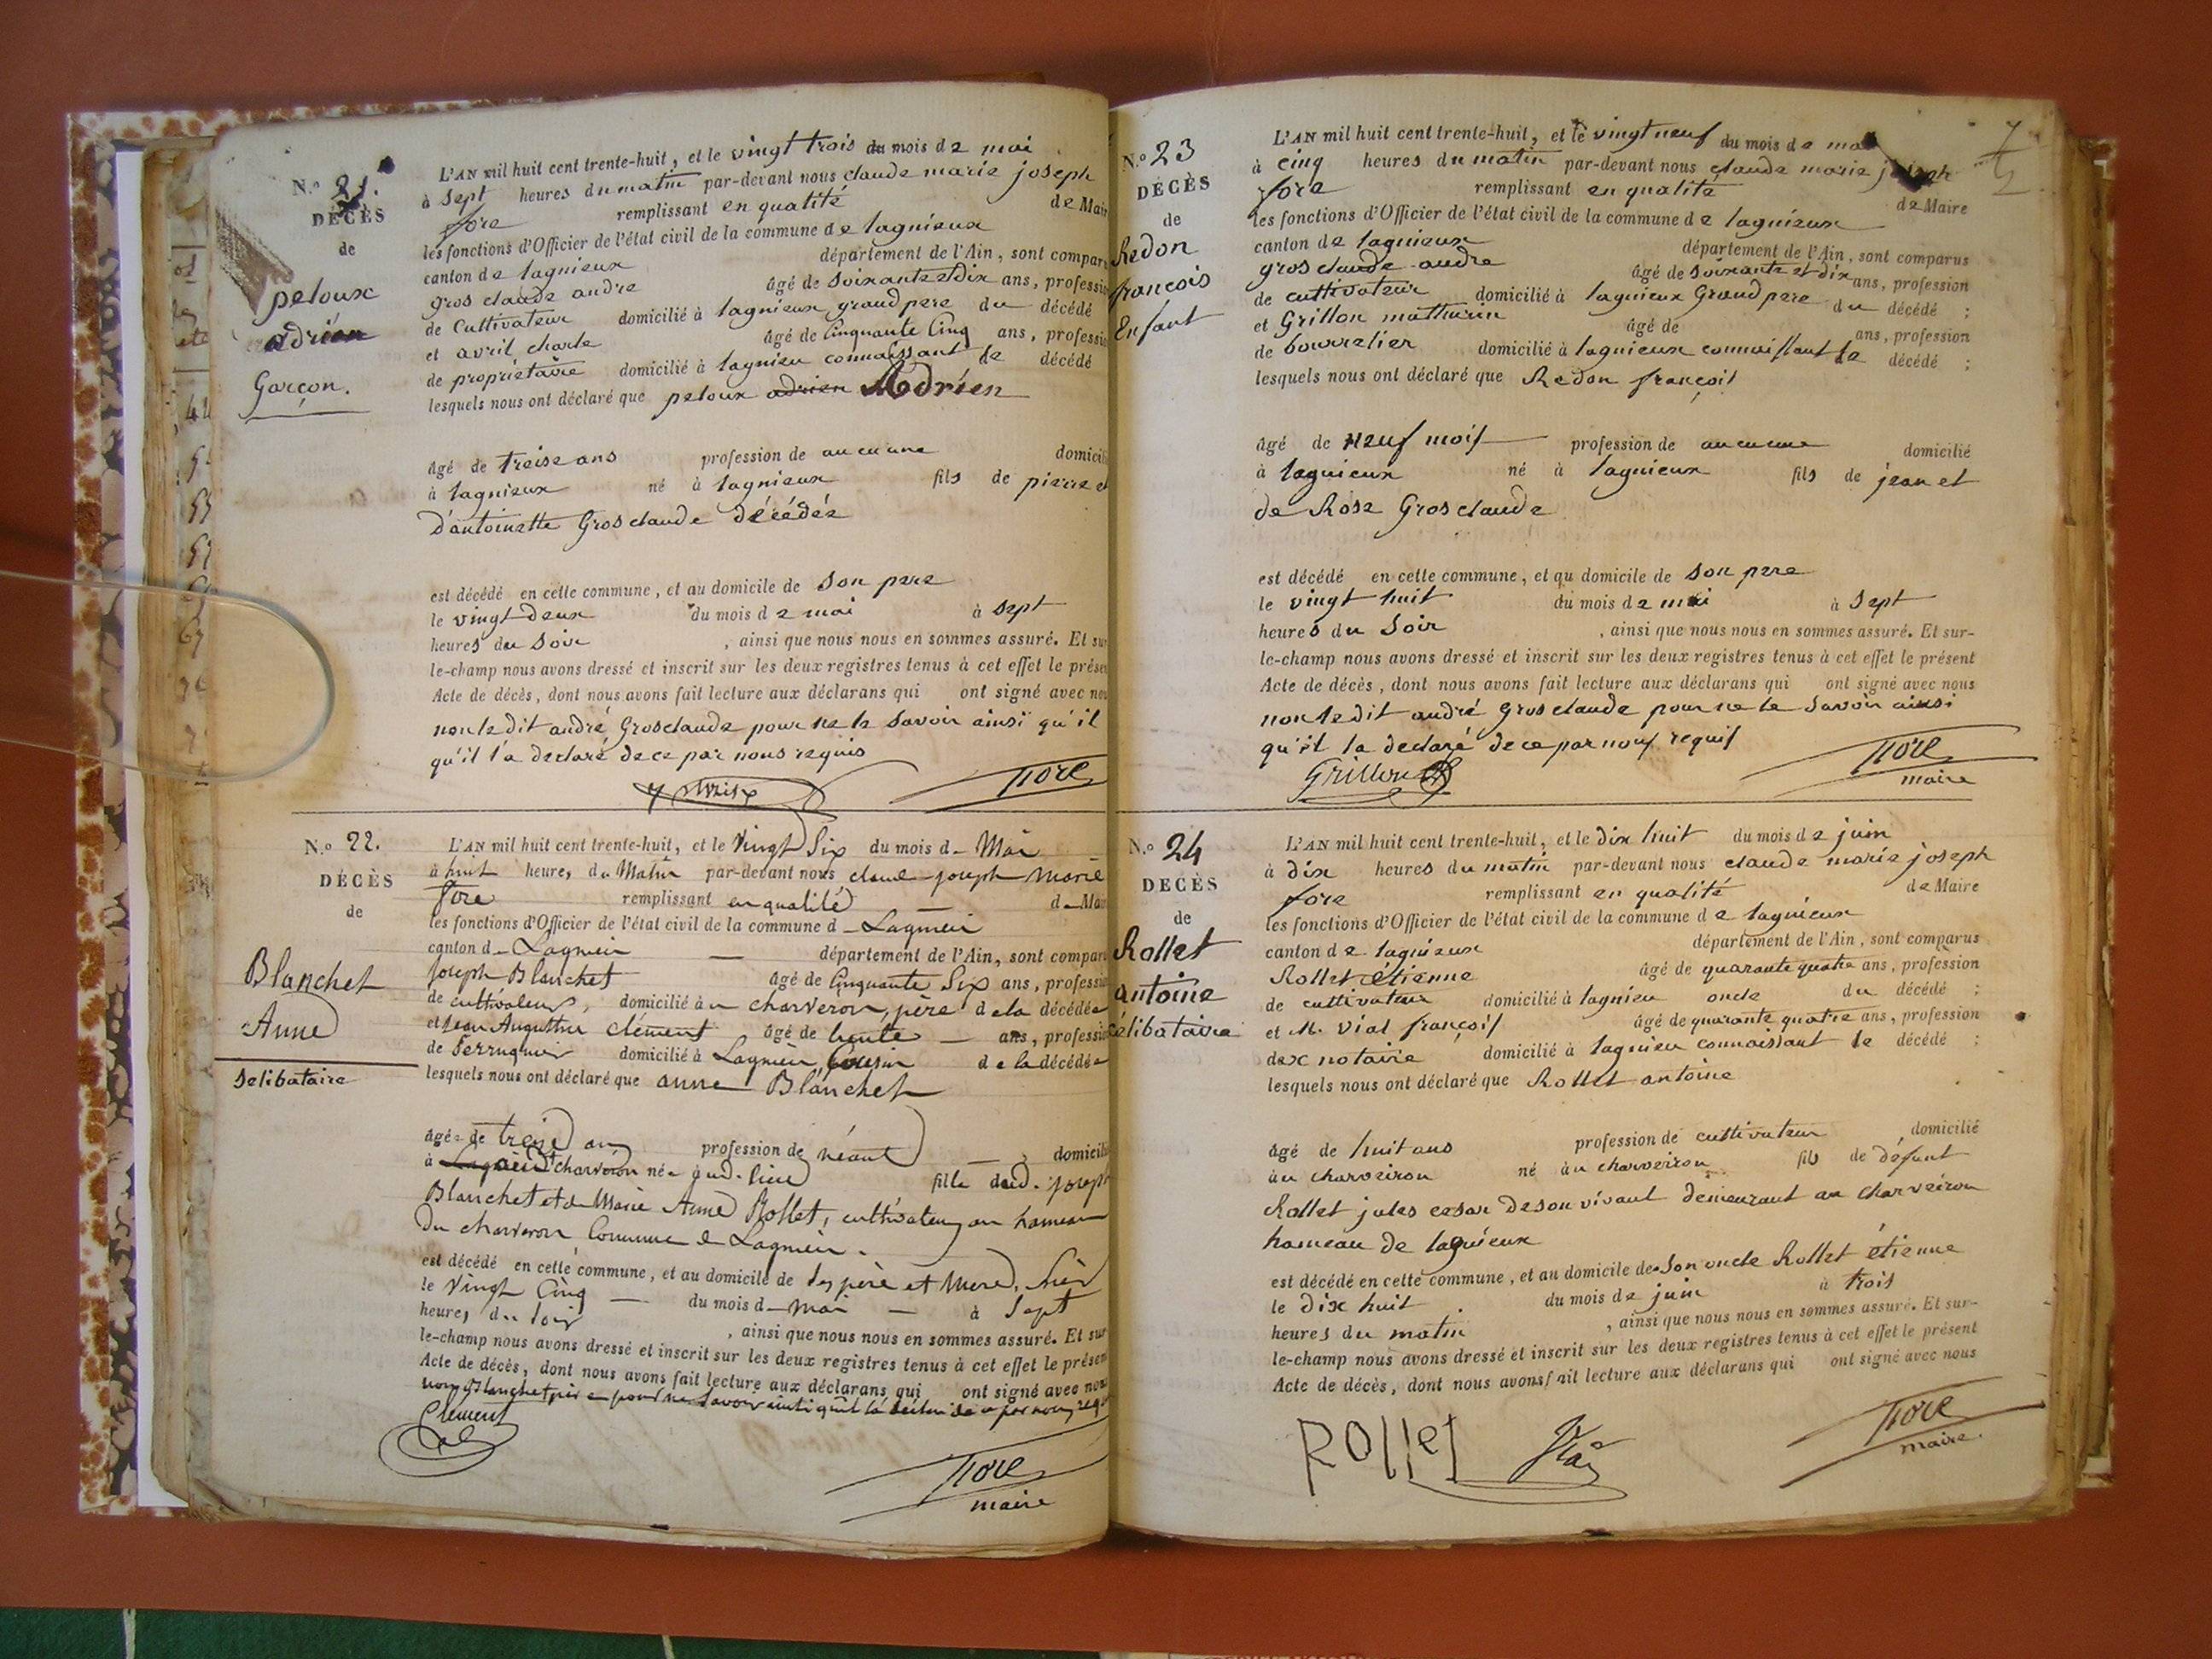 N.o 21.
DÉCÈS
de
peloux
adrien
Garçon.
L'AN mil huit cent trente-huit, et le vingt trois du mois de mai
à sept heures du matin par-devant nous claude marie joseph
fore remplissant en qualité de Mair
les fonctions d'Officier de l'état civil de la commune de lagnieux
canton de lagnieux département de l'Ain, sont compar
gros claude andre âgé de soixante et dix ans, professio
de Cultivateur domicilié à lagnieux grand pere du décédé
et avril charle âgé de Cinquante Cinq ans, professio
de propriétaire domicilié à lagnieu connaissant le décédé
lesquels nous ont déclaré que peloux adrien Adrien
âgé de treise ans profession de aucune domicili
à lagnieux né à lagnieux fils de pierre et
d'antoinette Gros claude décédée
est décédé en cette commune, et au domicile de son pere
le vingt deux du mois de mai à sept
heures du soir , ainsi que nous nous en sommes assuré. Et sur
le-champ nous avons dressé et inscrit sur les deux registres tenus à cet effet le prése
Acte de décès, dont nous avons fait lecture aux déclarans qui ont signé avec nou
non le dit andré Grosclaude pour ne le savoir ainsi qu'il
qu'il l'a declaré de ce par nous requis
fore
N.o 22.
DÉCÈS
de
Blanchet
Anne
selibataire
L'AN mil huit cent trente-huit, et le Vingt Six du mois d- Mai
à huit heures du Matin par-devant nous claude joseph marie
fore remplissant en qualité de Mair
les fonctions d'Officier de l'état civil de la commune d- Lagnieu
canton d- Lagnieu département de l'Ain, sont compar
joseph Blanchet âgé de Cinquante Six ans, professio
de cultivateur, domicilié au charveron, père de la décédée
et Jean Augustin clément âgé de trente ans, professio
de Perruquier domicilié à Lagnieu, Cousin de la décédée
lesquels nous ont déclaré que anne Blanchet
âgée de treize ans profession de néant domicili
à Lagnieu charveron née aud. lieu fille dud. joseph
Blanchet et de Marie Anne Rollet, cultivateurs au hameau
du charveron Commune de Lagnieu.
est décédé en cette commune, et au domicile de ses père et mere, hier
le Vingt Cinq du mois d- mai à Sept
heures du soir , ainsi que nous nous en sommes assuré. Et sur
le-champ nous avons dressé et inscrit sur les deux registres tenus à cet effet le présen
Acte de décès, dont nous avons fait lecture aux déclarans qui ont signé avec nou
non Blanchet père pour ne savoir ainsi qu'il l'a déclaré de ce par nous requ
Clément
fore
maire
N.o 23
DÉCÈS
de
Redon
françois
Enfant
L'AN mil huit cent trente-huit, et le vingt neuf du mois de mai
à cinq heures du matin par-devant nous claude marie joseph
fore remplissant en qualité de Maire
les fonctions d'Officier de l'état civil de la commune de lagnieux
canton de lagnieux département de l'Ain, sont comparus
gros claude andre âgé de soixante et dix ans, profession
de cultivateur domicilié à lagnieux Grand pere du décédé ;
et Grillon mathurin âgé de ans, profession
de bourrelier domicilié à lagnieux connaissant le décédé ;
lesquels nous ont déclaré que Redon françois
âgé de neuf mois profession de aucune domicilié
à lagnieux né à lagnieux fils de jean et
de Rose Gros claude
est décédé en cette commune, et au domicile de son pere
le vingt huit du mois de mai à sept
heures du Soir , ainsi que nous nous en sommes assuré. Et sur-
le-champ nous avons dressé et inscrit sur les deux registres tenus à cet effet le présent
Acte de décès, dont nous avons fait lecture aux déclarans qui ont signé avec nous
non le dit andré gros claude pour ne le savoir ainsi
qu'il la declaré de ce par nous requis
Grillon
fore
maire
N.o 24
DECÈS
de
Rollet
antoine
célibataire
L'AN mil huit cent trente-huit, et le dix huit du mois de juin
à dix heures du matin par-devant nous claude marie joseph
fore remplissant en qualité de Maire
les fonctions d'Officier de l'état civil de la commune de lagnieux
canton de lagnieux département de l'Ain, sont comparus
Rollet étienne âgé de quarante quatre ans, profession
de cultivateur domicilié à lagnieu oncle du décédé ;
et M. vial françois âgé de quarante quatre ans, profession
dex notaire domicilié à lagnieu connaissant le décédé ;
lesquels nous ont déclaré que Rollet antoine
âgé de huit ans profession de cultivateur domicilié
au charveiron né au charveiron fils de défunt
Rollet jules cesar de son vivant demeurant au charveiron
hameau de lagnieux
est décédé en cette commune, et au domicile de son oncle Rollet étienne
le dix huit du mois de juin à trois
heures du matin , ainsi que nous nous en sommes assuré. Et sur-
le-champ nous avons dressé et inscrit sur les deux registres tenus à cet effet le présent
Acte de décès, dont nous avons fait lecture aux déclarans qui ont signé avec nous
Rollet
fore
maire.